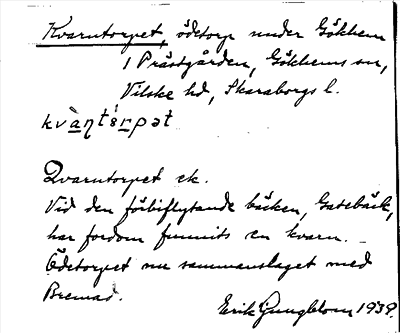 Kvarntorpet, ödetorp under Gökhem
1 Prästgården, Gökhems sn,
Vilske hd, Skaraborgs l.
kvàɳt`srpət
Qvarntorpet ek.
Vid den förbiflytande bäcken, Gatebäck,
har fordom funnits en kvarn.
Ödetorpet nu sammanslaget med
Bremad.
Erik Ljungblom 1939.